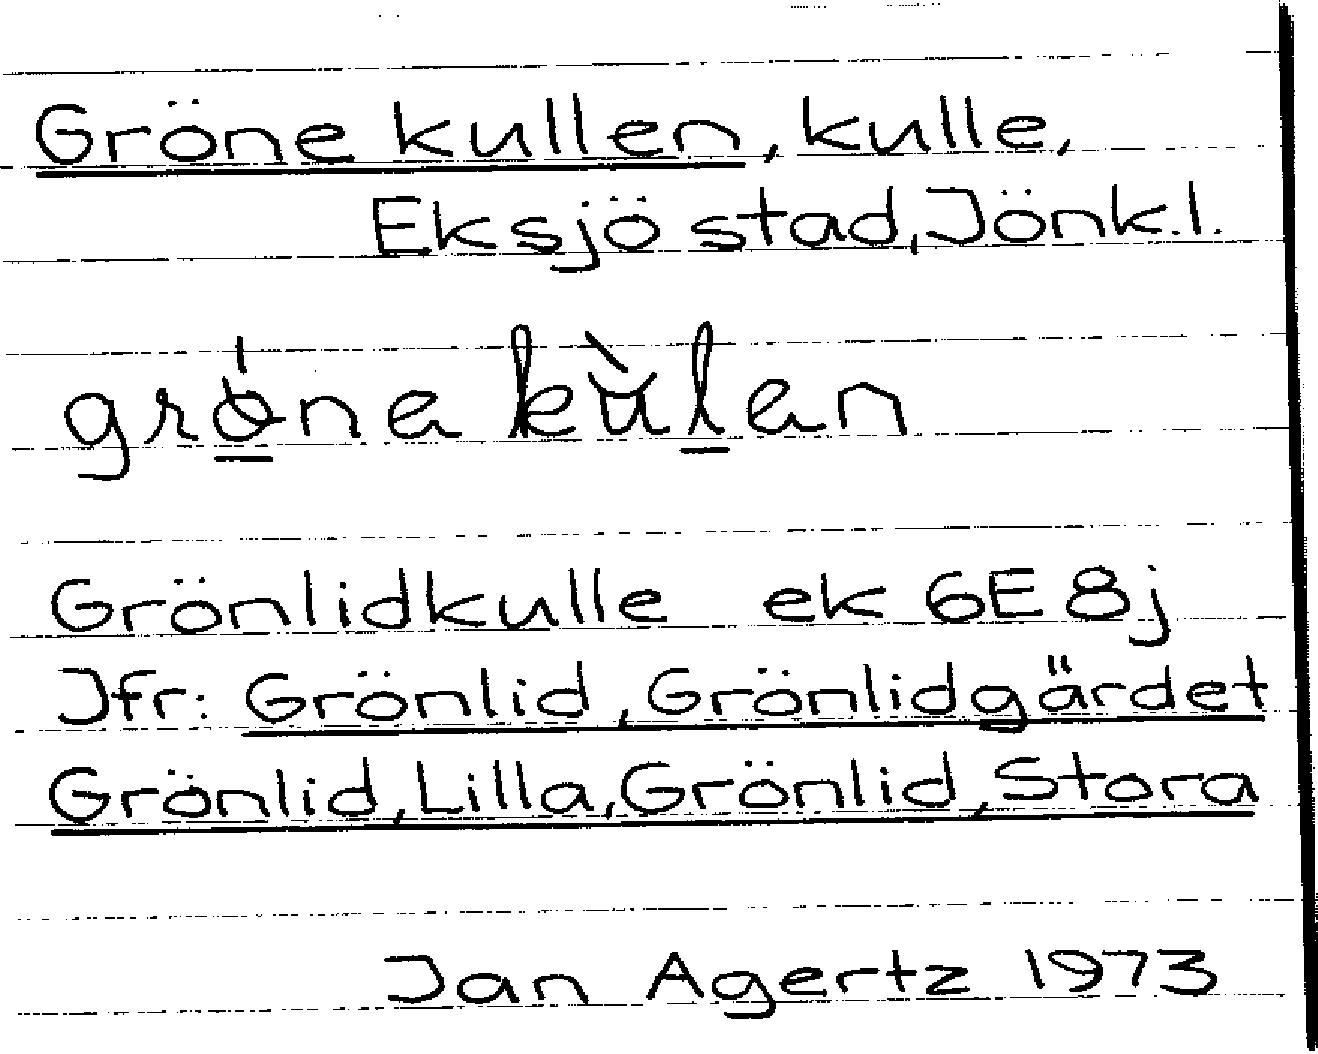 Gröne kullen, kulle,
Eksjö stad, Jönk.l.
Grönlidkulle ek 6E 8j
Jfr: Grönlid, Grönlidgärdet
Grönlid, Lilla, Grönlid, Stora
Jan Agertz 1973